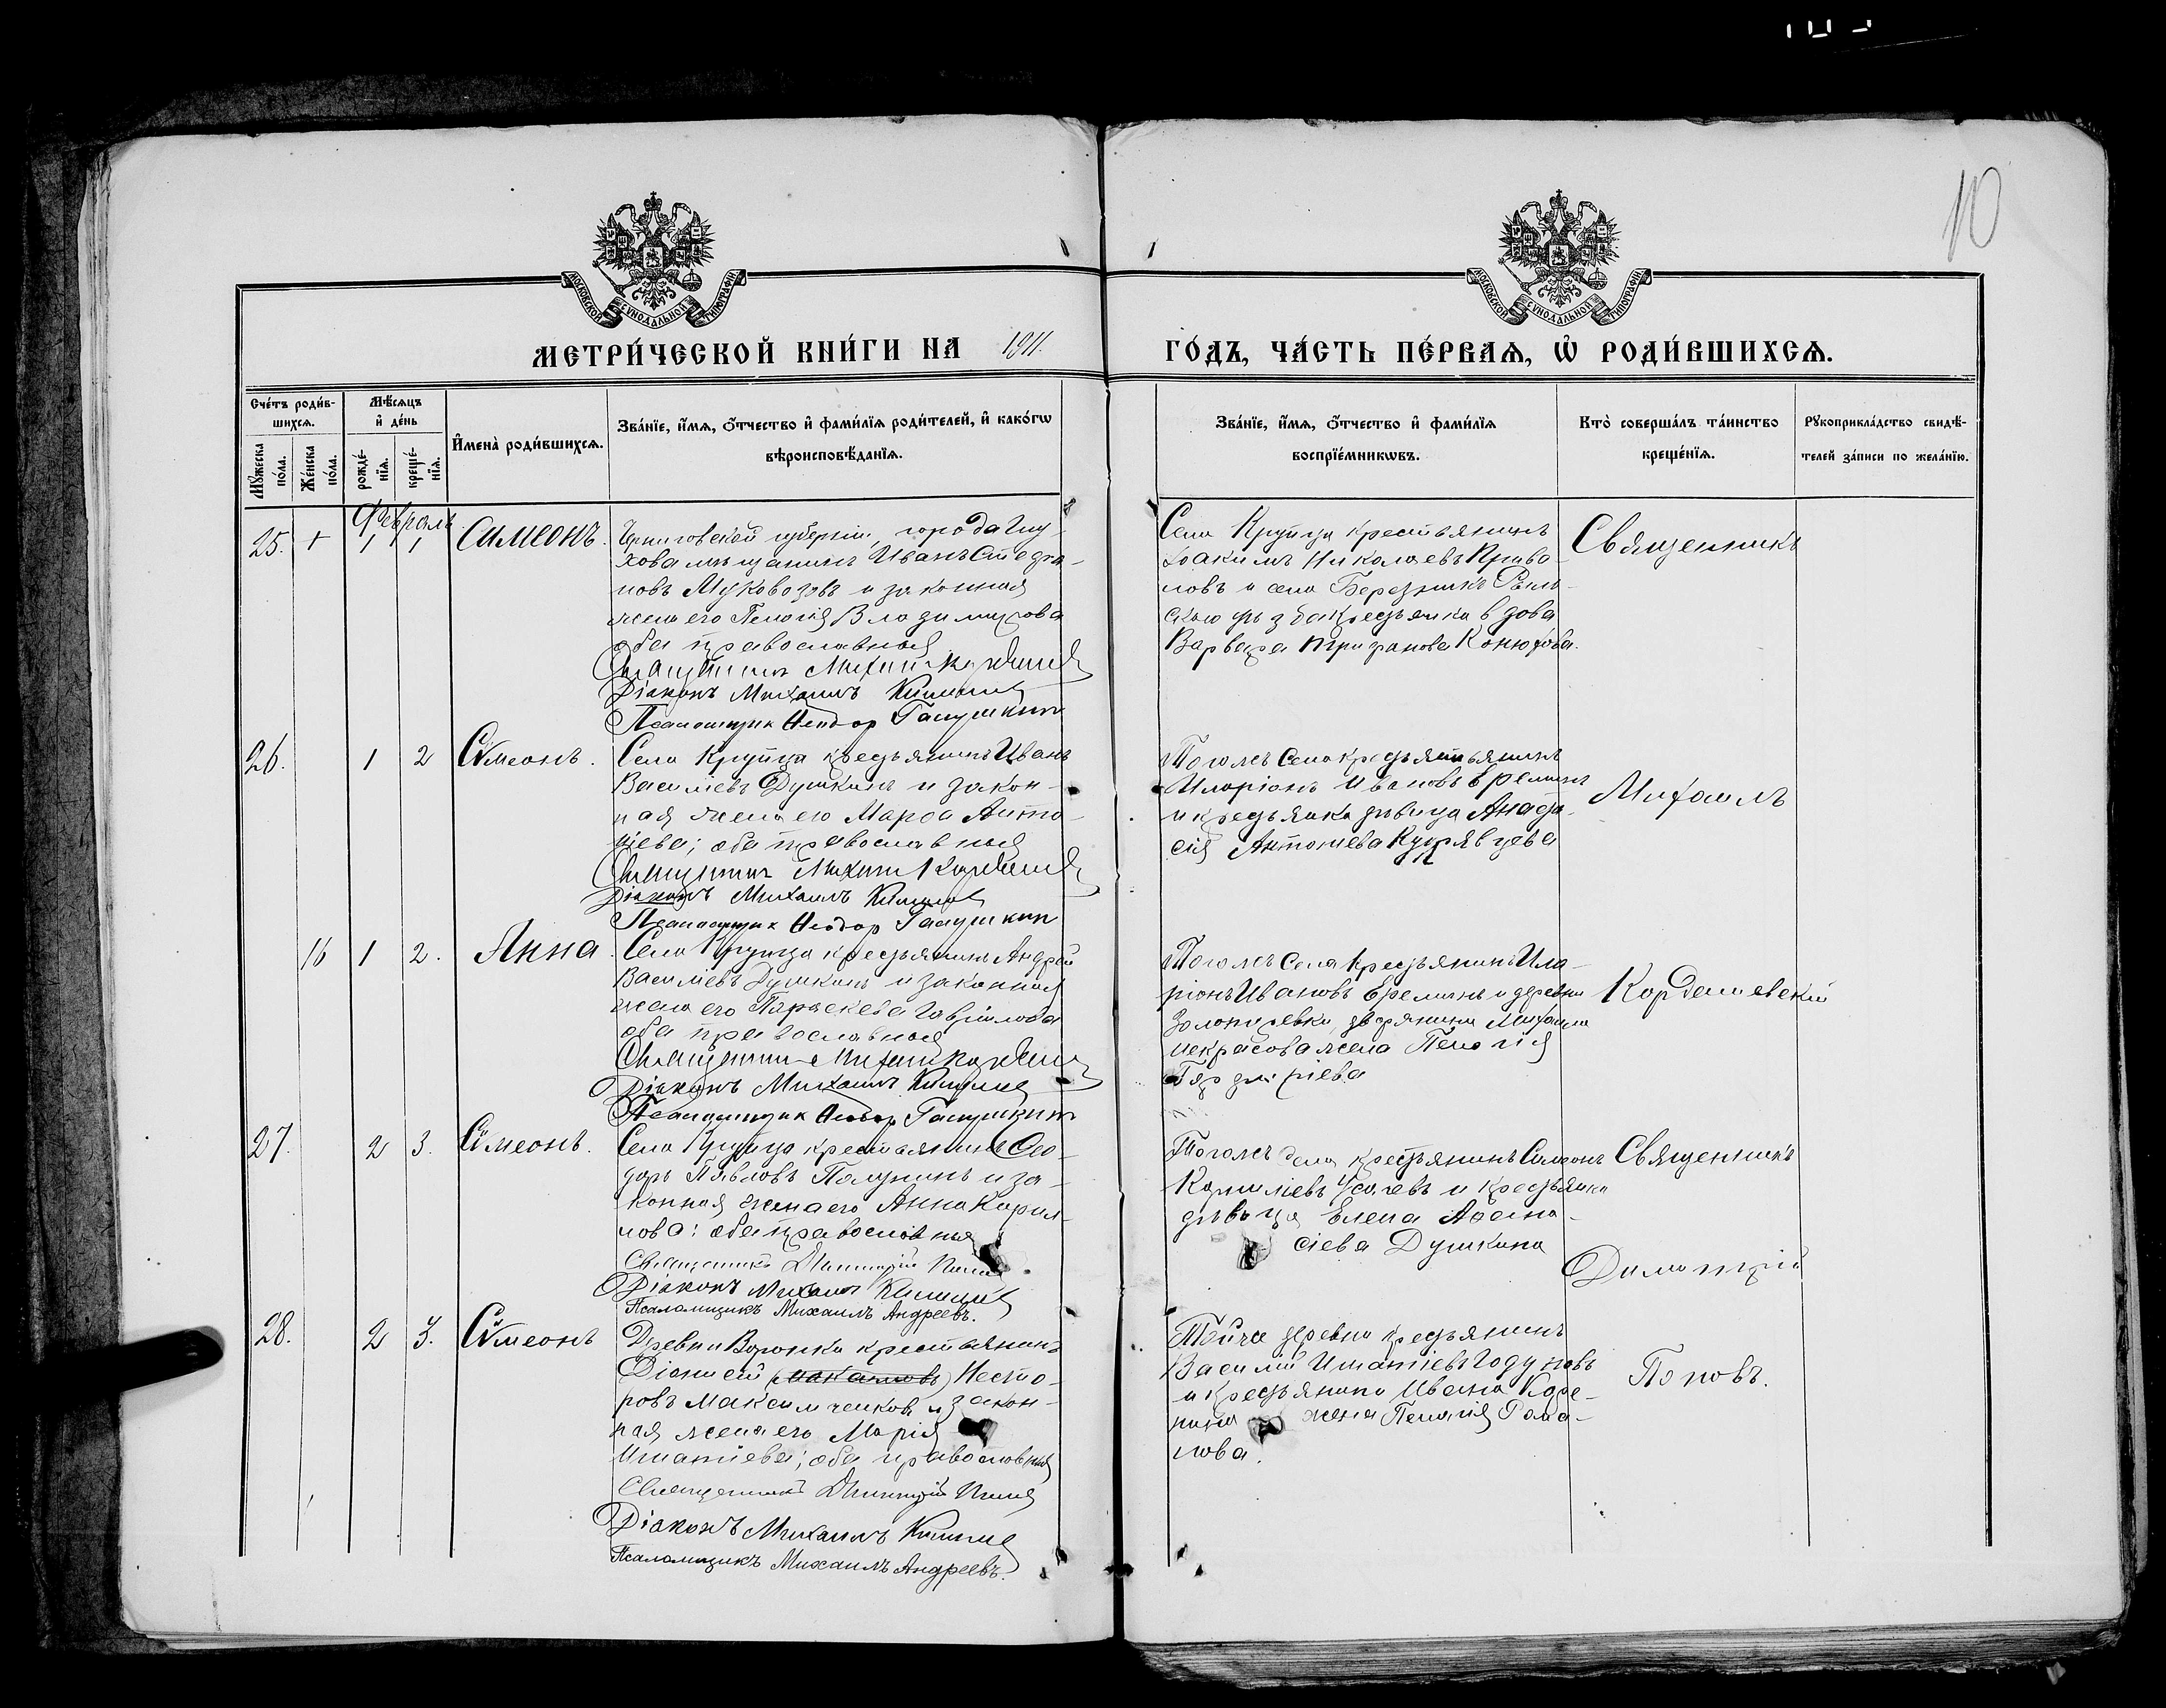 10
МОСКОВСКОЙ СѴНОДАЛЬНОЙ ТИПОГРАФІИ
МОСКОВСКОЙ СѴНОДАЛЬНОЙ ТИПОГРАФІИ
МЕТРИ́ЧЕСКОЙ КНИ́ГИ НА 1911. ГО́ДЪ, ЧА́СТЬ ПЕ́РВАѦ, Ѡ҆ РОДИ́ВШИХСѦ.
Сче́тъ роди́в-
шихсѧ.
Мꙋ́жеска по́ла.
Же́нска по́ла.
Мѣ́сѧцъ
и҆ де́нь
рожде́-
нїѧ.
креще́-
нїѧ.
И҆мена̀ роди́вшихсѧ.
Зва́нїе, и҆́мѧ, ѻ҆́тчество и҆ фами́лїѧ роди́телей, и҆ како́гѡ
вѣроисповѣ́данїѧ.
Зва́нїе, и҆́мѧ, ѻ҆́тчество и҆ фами́лїѧ
воспрїе́мникѡвъ.
Кто̀ соверша́лъ та́инство
креще́нїѧ.
Рꙋкоприкла́дство свидѣ́-
телей за́писи по жела́нїю.
Февраль
25. + 1 1 Симеонъ.
Черниговской губерніи, города Глу-
хова мѣщанинъ Иванъ Стефа-
новъ Муковозовъ и законная
жена его Пелагія Владимирова
оба православныя
Священникъ Михаилъ
Діаконъ Михаилъ
Псаломщик Ѳеодор Галушкин
Села Крупца крестьянинъ
Іоакимъ Николаевъ Криво-
ловъ и села Березникъ Рыль-
скаго уѣзда крестьянка вдова
Варвара Конюхова.
Священникъ
26. 1 2 Сѵмеонъ.
Села Крупца крестьянинъ Иванъ
Василіевъ Душкинъ и закон-
ная жена его Марѳа Анто-
ніева; оба православныя
Священникъ Михаилъ
Діаконъ Михаилъ
Псаломщик Ѳеодор Галушкин
Тогожъ села крестьянинъ
Иларіонъ Ивановъ Ереминъ
и крестьянка дѣвица Анаста-
сія Антоніева Кудрявцева
Михаилъ
16 1 2. Анна
Села Крупца крестьянинъ Андрей
Василіевъ Душкинъ и законная
жена его Параскева Гавріилова
оба православныя
Священникъ Михаилъ
Діаконъ Михаилъ
Псаломщик Ѳеодор Галушкин
Тогожъ села крестьянинъ Ила-
ріонъ Ивановъ Ереминъ и деревни
дворянина Михаила
Некрасова жена Пелагія
Кордашевскій
27. 2 3. Сѵмеонъ.
Села Крупца крестьянинъ Ѳео-
доръ Павловъ Полунинъ и за-
конная жена его Анна Кирил-
лова: оба православныя
Священникъ Димитрій Поповъ
Діаконъ Михаилъ
Псаломщикъ Михаилъ Андреевъ.
Тогожъ села крестьянинъ Симеонъ
Корниліевъ Усачевъ и крестьянка
дѣвица Елена Аѳана-
сіева Душкина
Священникъ
Димитрій
28. 2 3. Сѵмеонъ
Деревни Воронки крестьянинъ
Діонисій Несто-
ровъ Максимченковъ и закон-
ная жена его Марія
Игнатіева; оба православныя
Священникъ Димитрій Поповъ
Діаконъ Михаилъ
Псаломщикъ Михаилъ Андреевъ.
Тойже деревни крестьянинъ
Василій Игнатіевъ Годуновъ
и крестьянина Ивана Коре-
нина жена Пелагія Рома-
нова.
Поповъ.